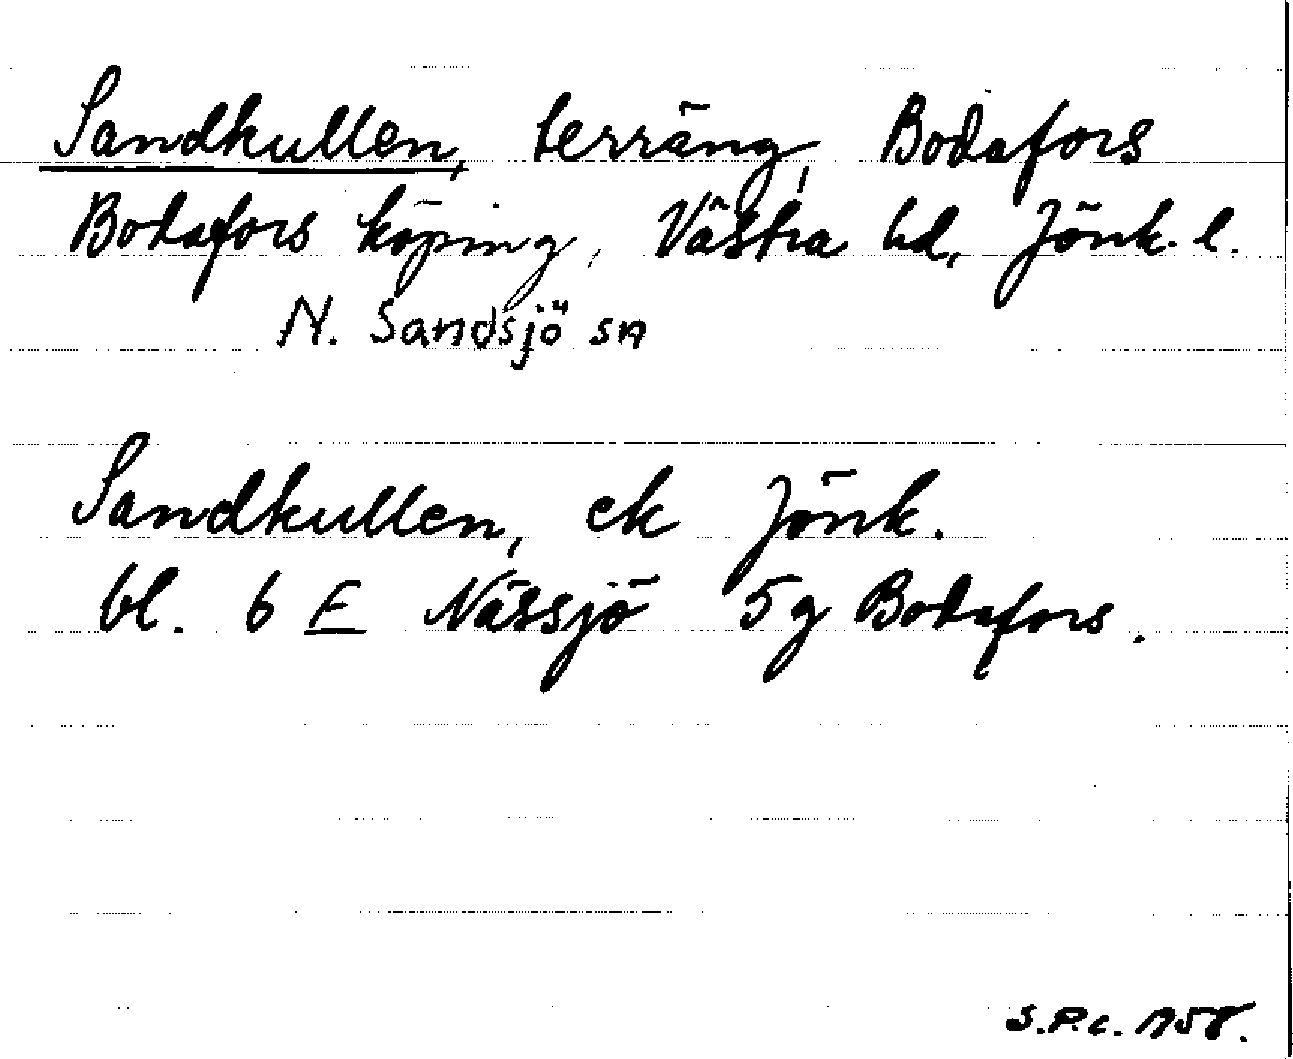 Sandkullen, terräng, Bodafors
Bodafors köping, Västra hd, Jönk. l.
N. Sandsjö sn
Sandkullen, ek Jönk.
bl. 6 E Nässjö 5 g Bodafors.
S.P.C. 1958.